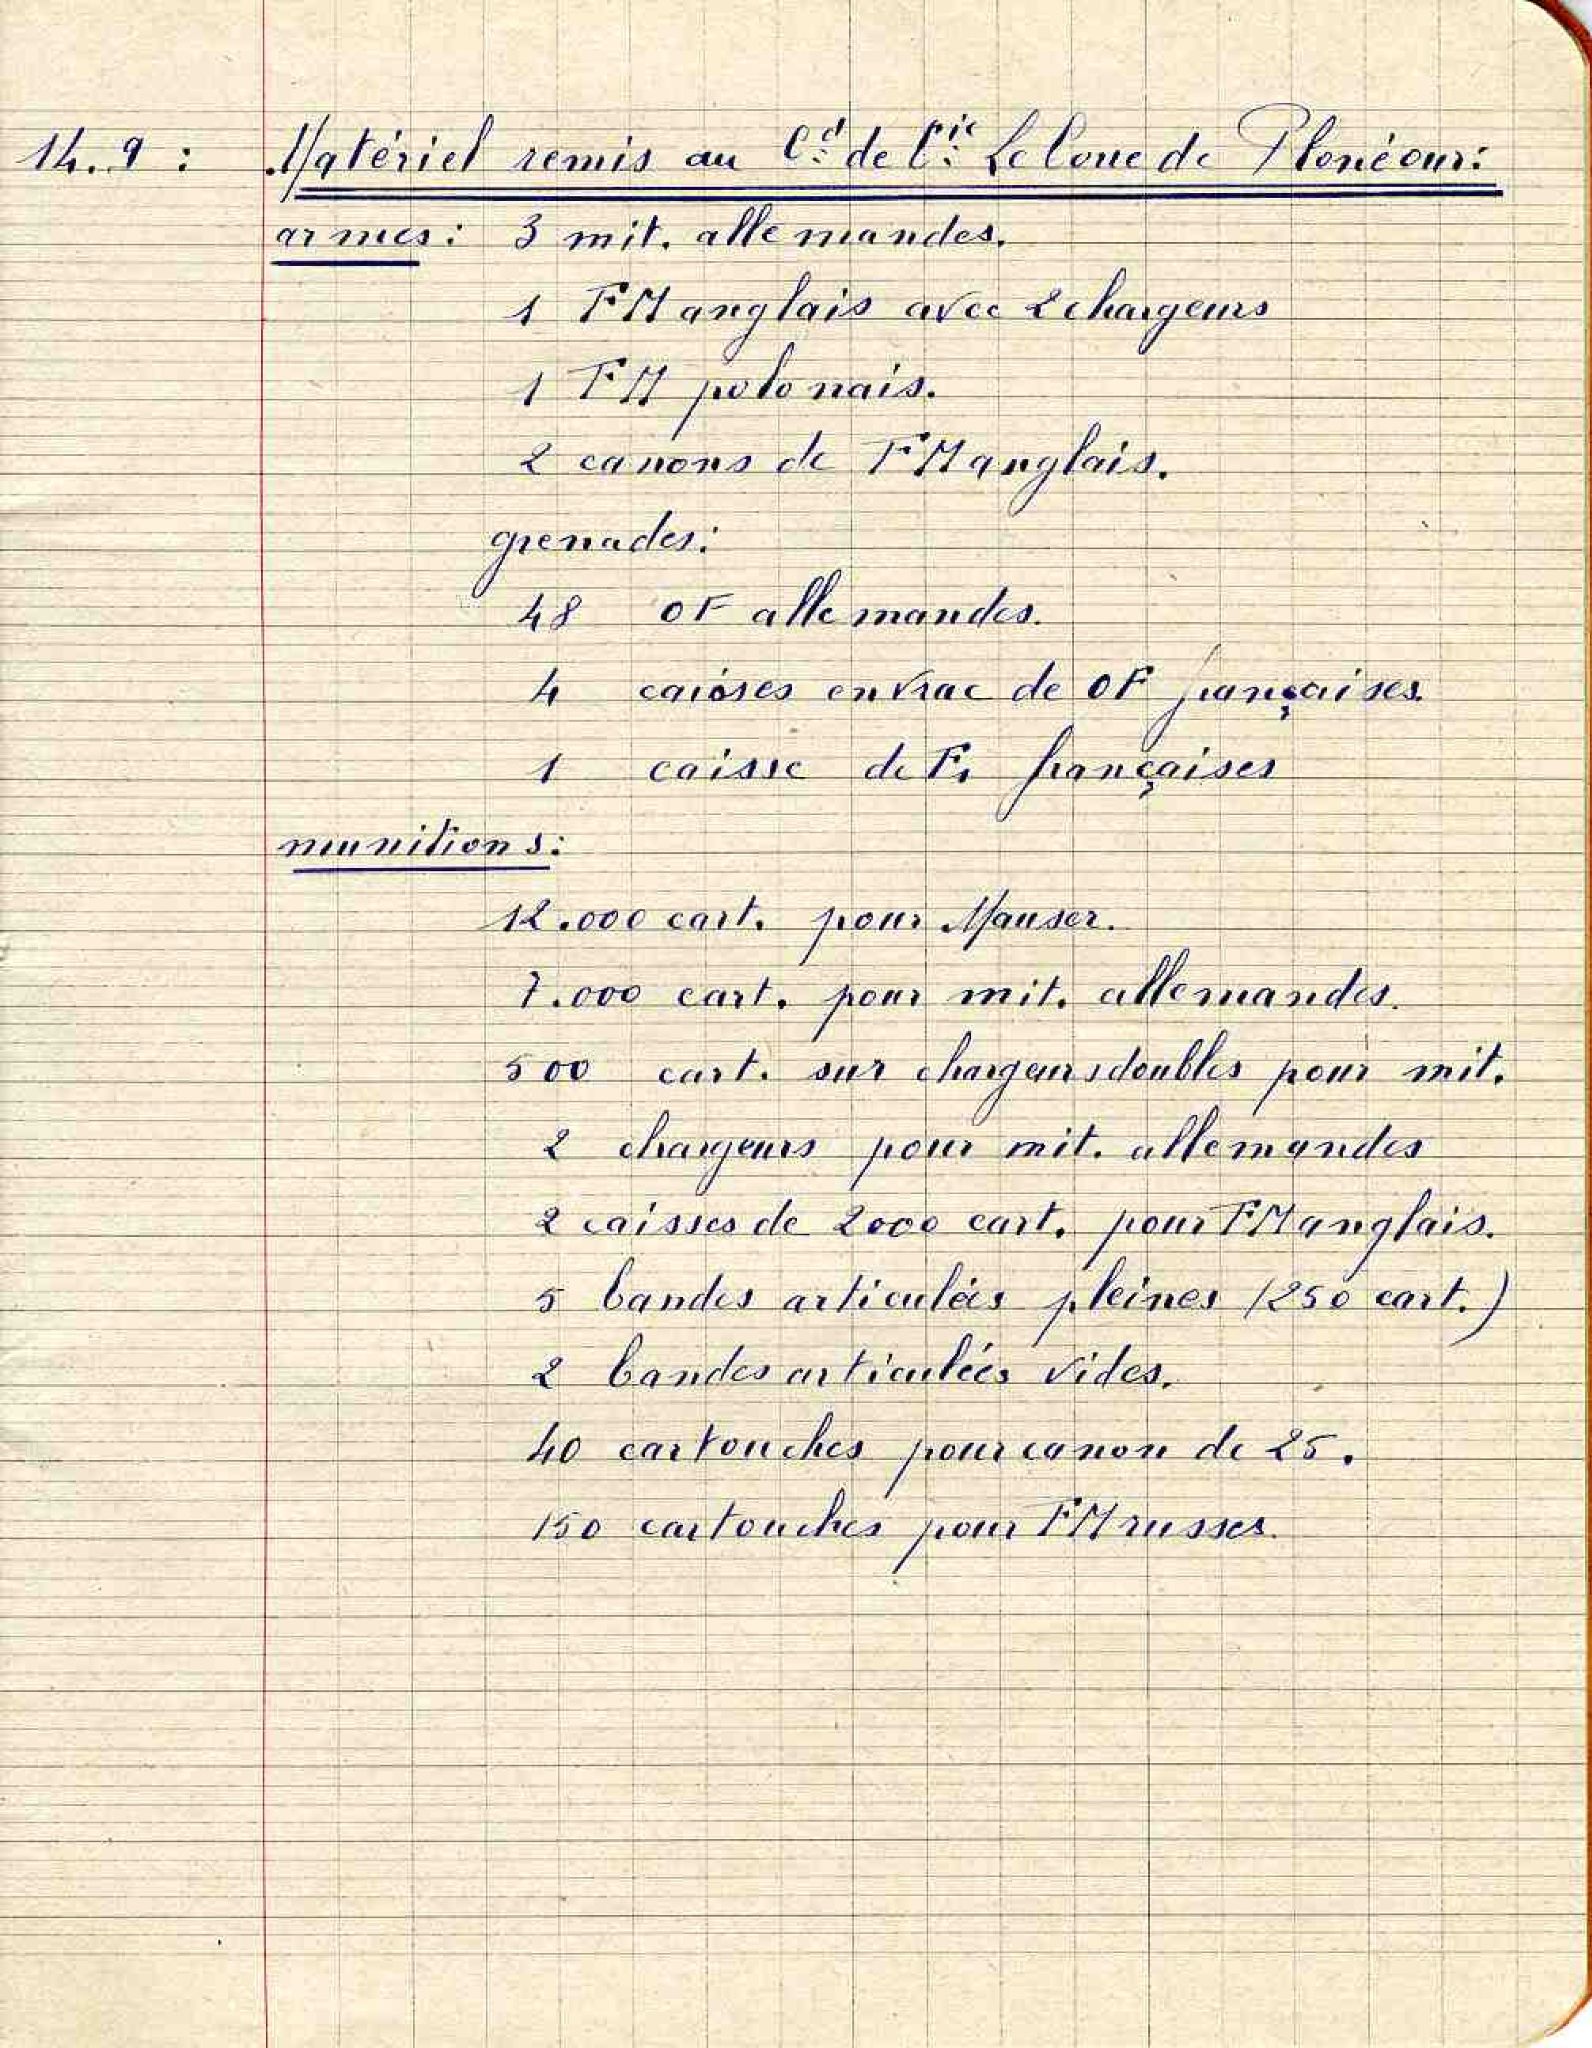 14.9 : Matériel remis au Cdt de Cie Le Coue de Plonéour:
armes: 3 mit. allemandes.
1 FM anglais avec 2 chargeurs
1 FM polonais.
2 canons de FM anglais.
grenades:
48 OF allemandes.
4 caisses en vrac de OF françaises.
1 caisse de F1 françaises
munitions:
12.000 cart. pour Mauser.
7.000 cart. pour mit. allemandes.
500 cart. sur chargeurs doubles pour mit.
2 chargeurs pour mit. allemandes
2 caisses de 2000 cart. pour FM anglais.
5 bandes articulées pleines (250 cart.)
2 bandes articulées vides.
40 cartouches pour canon de 25.
150 cartouches pour FM russes.